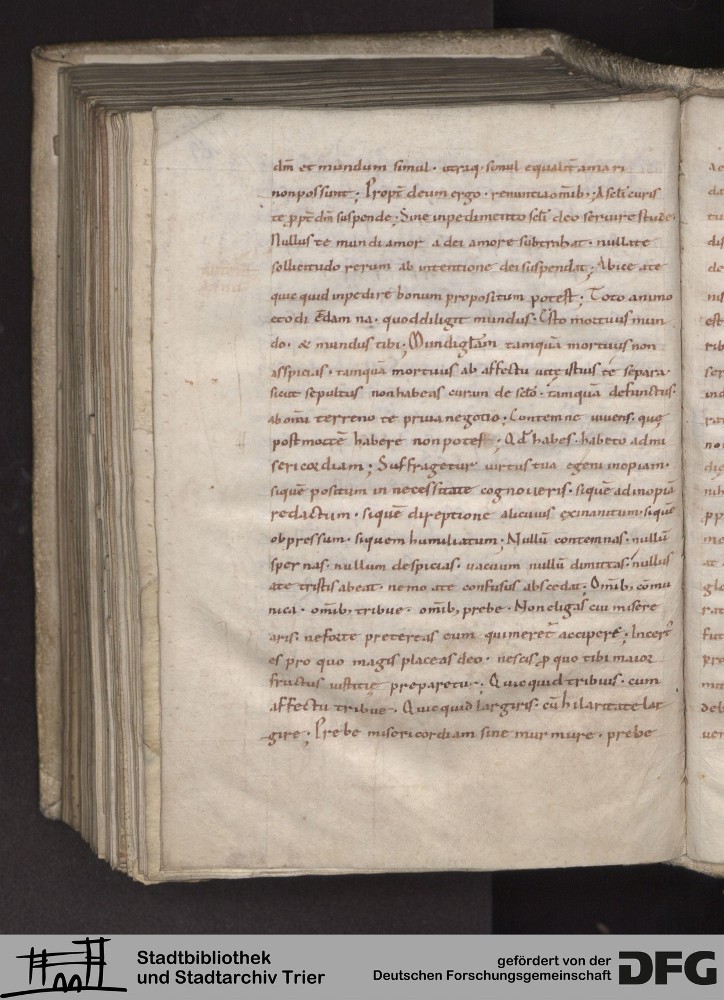 dm̄ et mundum simul · utraq· simul equalit̄ amari
non possunt ; Propt̄ deum ergo · renuntia omīb; ; A sclī curis
te ꝓpt̄ dm̄ suspende ; Sine inpedimento sclī deo seruire stude ·
Nullus te mundi amor a dei amore subtrahat · nulla te
sollicitudo rerum ab intentione dei suspendat ; Abice a te
quicquid inpedire bonum propositum potest ; Toto animo
et odi & dam na · quod diligit mundus · Esto mortuus mun
do · & mundus tibi ; Mundi głam tamquā mortuus non
asspicias · tamquā mortuus ab affectu uitę istius te separa ·
sicut sepultus non habeas curam de scłō · tamquā defunctus ·
ab omī terreno te priua negotio ; Contemne uiuens · quę
post mortē habere non potes ; Qd̄ habes · habeto ad mi
sericordiam ; Suffragetur uirtus tua egeni inopiam ·
si quē positum in necessitate cognoueris · si quē ad inopiā
redactum · si quē direptione alicuius exinanitum · si quē
obpressum · si quem humiliatum ; Nullū contemnas · nullū
sper nas · nullum despicias · uacuum nullū dimittas · nullus
a te tristis abeat · nemo a te confusus abscedat ; Omīb; cōmu
nica · omīb; tribue · omīb; prebe · Non eligas cui misere
aris · ne forte pretereas eum qui meret̄ accipere ; Incert᷒
es pro quo magis placeas deo · nescis ꝓ quo tibi maior
fructus iustitię preparetur ; Quicquid tribuis · cum
affectu tribue · Quicquid largiris · cū hilaritate lar
gire ; Prebe misericordiam sine murmure · prebe
Stadtbibliothek
und Stadtarchiv Trier
gefördert von der
Deutschen Forschungsgemeinschaft
DFG